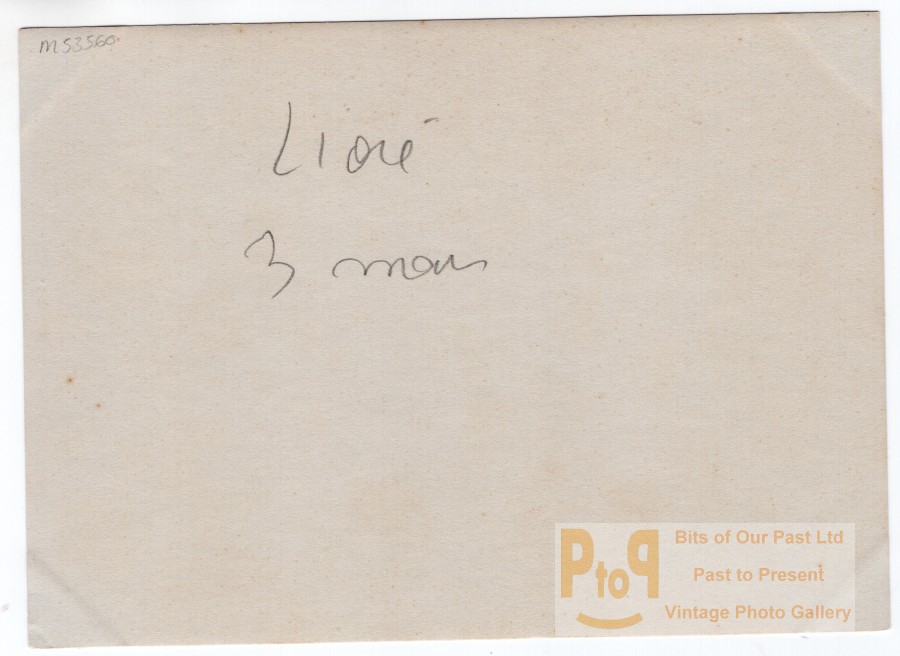 M53560
3 mois
PtoP
Bits of Our Past Ltd
Past to Present
Vintage Photo Gallery